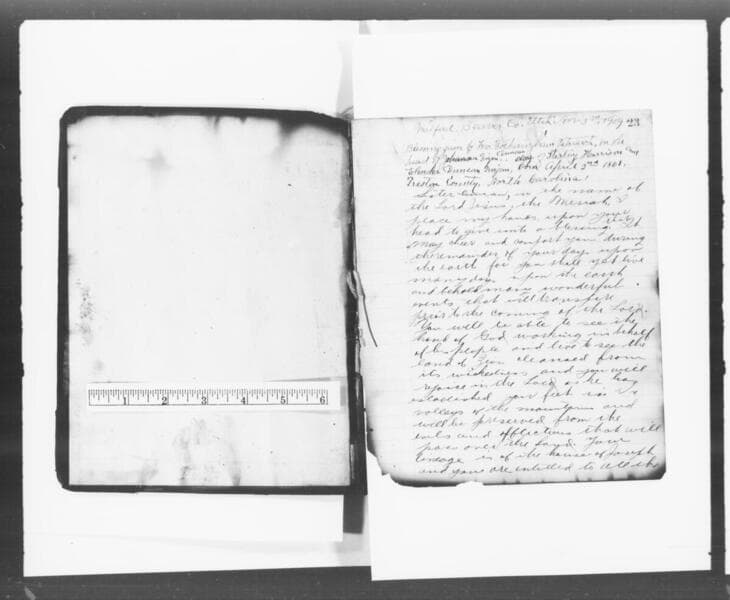 1 2 3 4 5 6
Beaver Co. Utah. 1909 23
Blessing given by Wm Fotheringham Patriarch, on the
head of Susannah daug. Sterling Harrison
Duncan born April 3rd 1861.
County, North Carolina.
Sister Susannah, in the name of
the Lord Jesus, the Messiah I
place my hands upon your
head to give unto a blessing that
may cheer and comfort you during
the remainder of your days upon
the earth for you shall yet live
many days upon the earth
and behold many wonderful
events that will transpire
prior to the coming of the Lord.
You will be able to see the
hand of God working in behalf
of his people and live to see the
land of Zion cleansed from
its wickedness and you will
rejoice in the Lord as he has
established your feet in
valleys of the mountains and
will be preserved from the
evils and afflictions that will
pass over the land. Your
lineage is of the house of Joseph
and you are entitled to all the